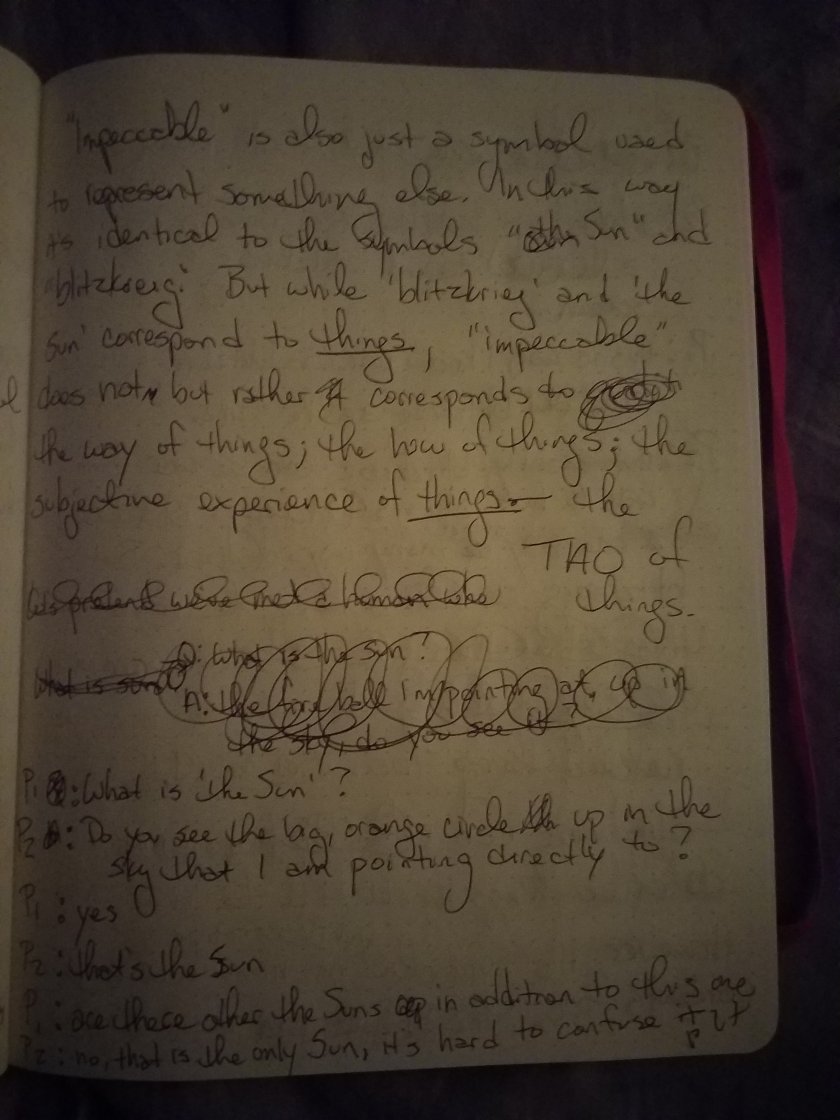 "Impeccable" is also just a symbol used
to represent something else. In this way
it's identical to the symbols "the Sun" and
"blitzkrieg." But while 'blitzkrieg' and 'the
Sun' correspond to things, "impeccable"
does not, but rather corresponds to
the way of things; the how of things; the
subjective experience of things — the
TAO of
things.
Let's pretend we've met a human who
Q: What is the sun?
What is sun
A: the fire ball I'm pointing at, up in
the sky, do you see it?
P1: What is 'the Sun'?
P2: Do you see the big, orange circle up in the
sky that I am pointing directly to?
P1: yes
P2: that's the Sun
P1: are there other the Suns in addition to this one
P2: no, that is the only Sun, it's hard to confuse it